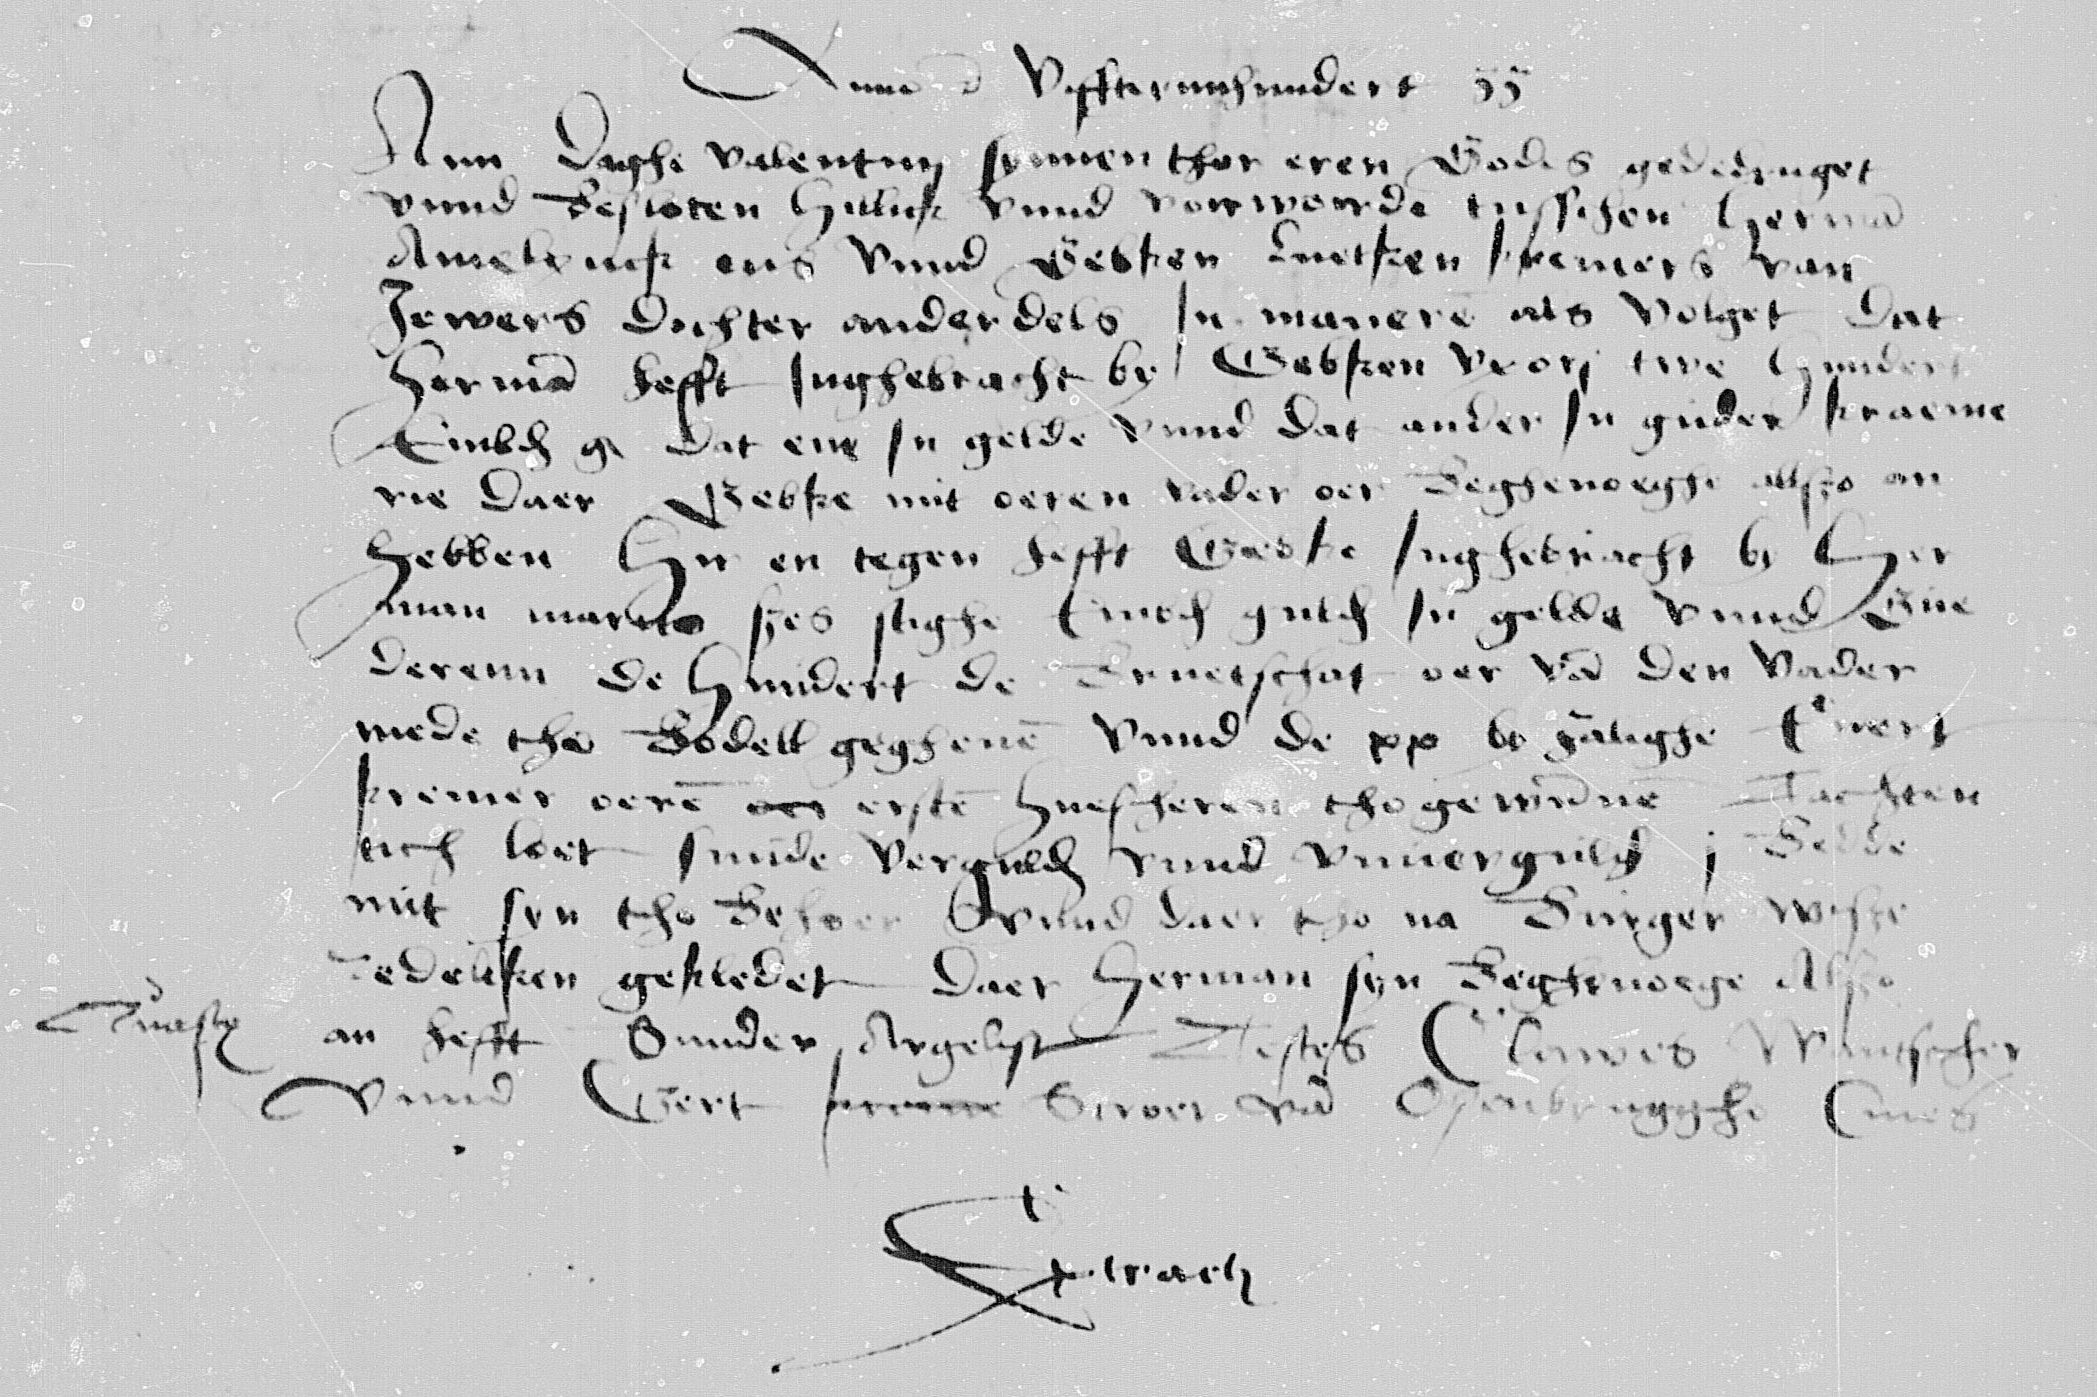 Anno d Vyffteinnhundert ÿÿ
Amm Daghe valentiny synnen thor eren Godes gededinget
vnnd Besloten hillick vnnd vorworde tusschen Hermā
Amelynck ens Vnnd Gebken Luetken kremers van
Jewers dochter anderdels In manerē als volget Dat
Hermā hefft Inghebracht by Gebken vrorj twe Hundert
Embd gl Dat ene In gelde vnnd dat ander In guder kraeme
rie Daer Gebke mit oeren vader oer Beghenoeghe allszo an
hebben Hir en tegen hefft Gebke Inghebracht by Her
man szes stighe Emd guld In gelde vnnd Gue
derenn de Hundert de Bruetschat oer vā den vader
mede tho Bodell geghenē Vnnd de xx de zālighe Evert
kremer oerē erstē Huesheren tho gewūnē Tachten
tich loet sūnde verguld vnnd vnuerguld j Bedde
mit syn tho Behoer Vnnd daer tho na Burger wyse
redeliken gekledet Daer Herman syn Beghenoege Alszo
an hefft Sunder Argelyst Testes Clawes Wantscher
vnnd Gert Stroer vā Osenbrugghe